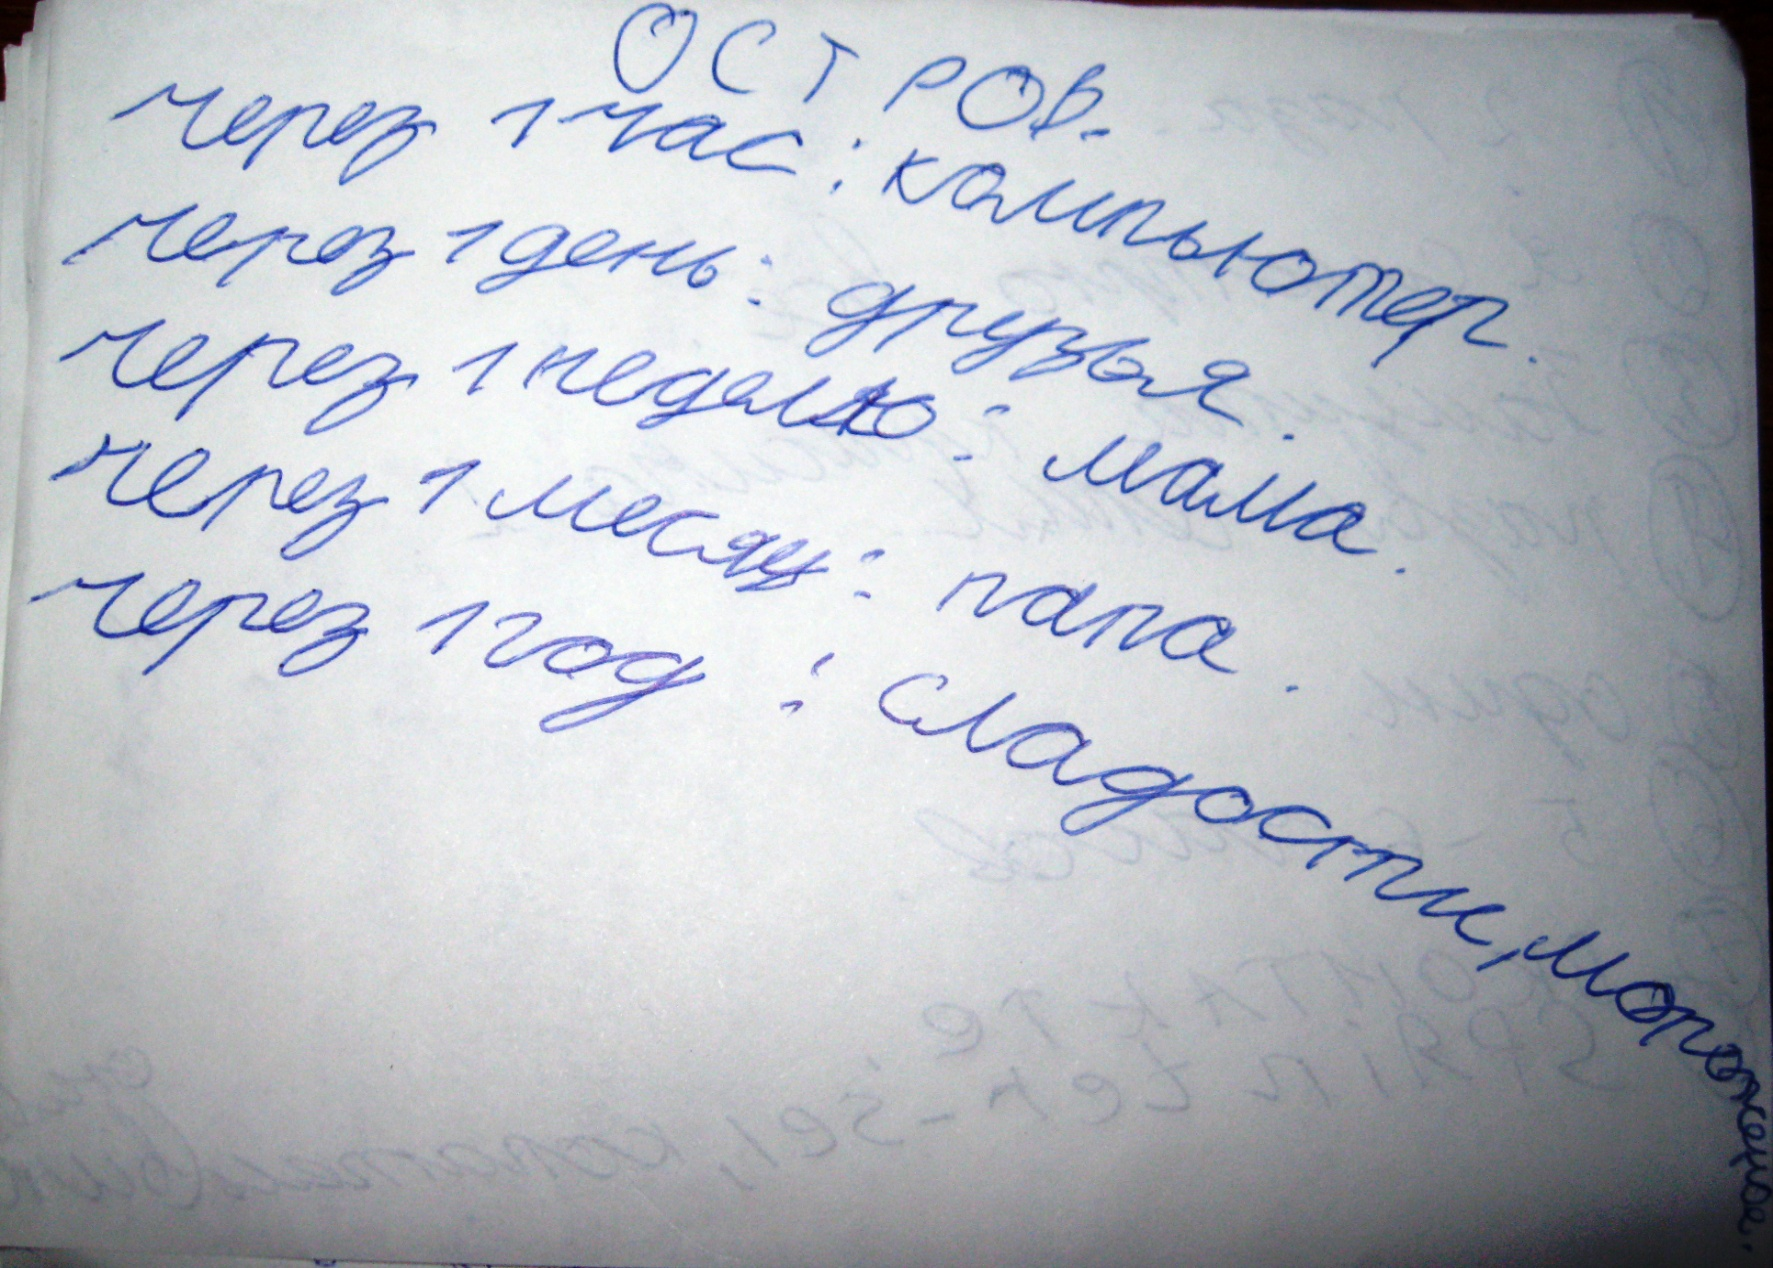 ОСТРОВ.
через 1 час: компьютер.
через 1 день: друзья.
через 1 неделю: мама.
через 1 месяц: папа.
через 1 год: сладости, мороженое.